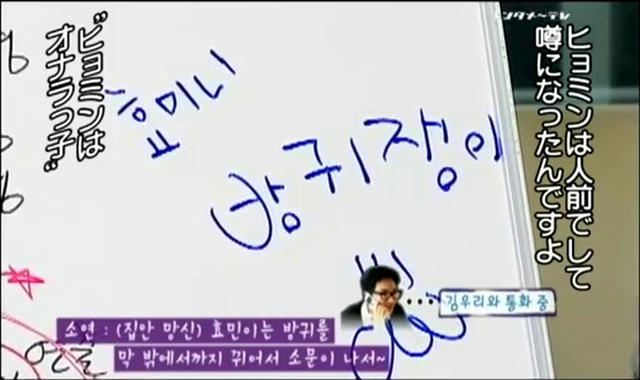 ンタメ～テレ
ヒョミンは人前でして
噂になったんですよ
"ヒョミンは
オナラっ子"
효미니
방귀쟁이
김우리와 통화 중
소연 : (집안 망신) 효민이는 방귀를
막 밖에서까지 뀌어서 소문이 나서~